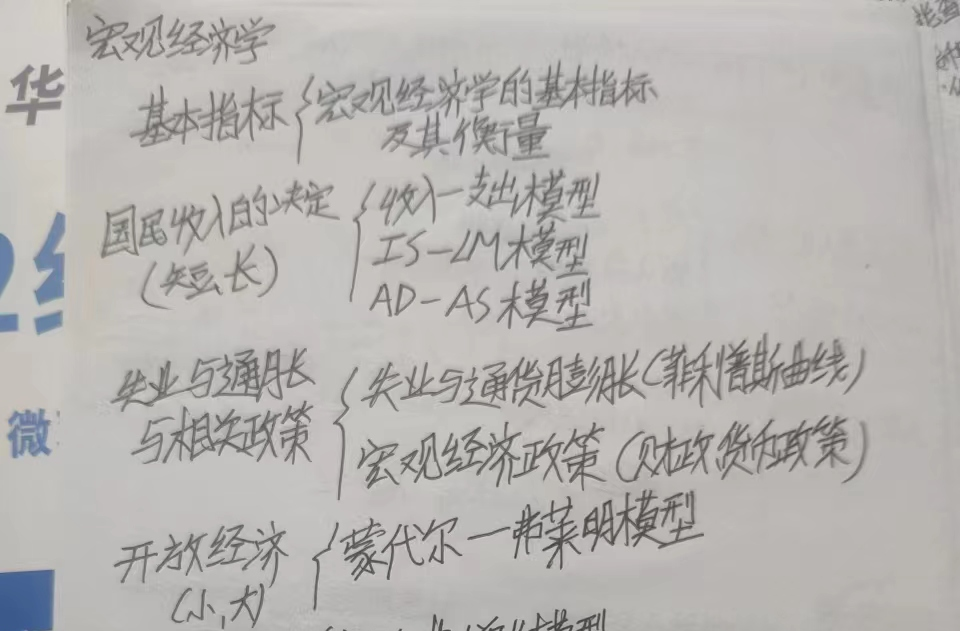 宏观经济学
基本指标
宏观经济学的基本指标
及其衡量
国民收入的决定
(短,长)
收入-支出模型
IS-LM模型
AD-AS模型
失业与通胀
与相关政策
失业与通货膨胀(菲利普斯曲线)
宏观经济政策(财政货币政策)
开放经济
(小,大)
蒙代尔-弗莱明模型
模型
华
微